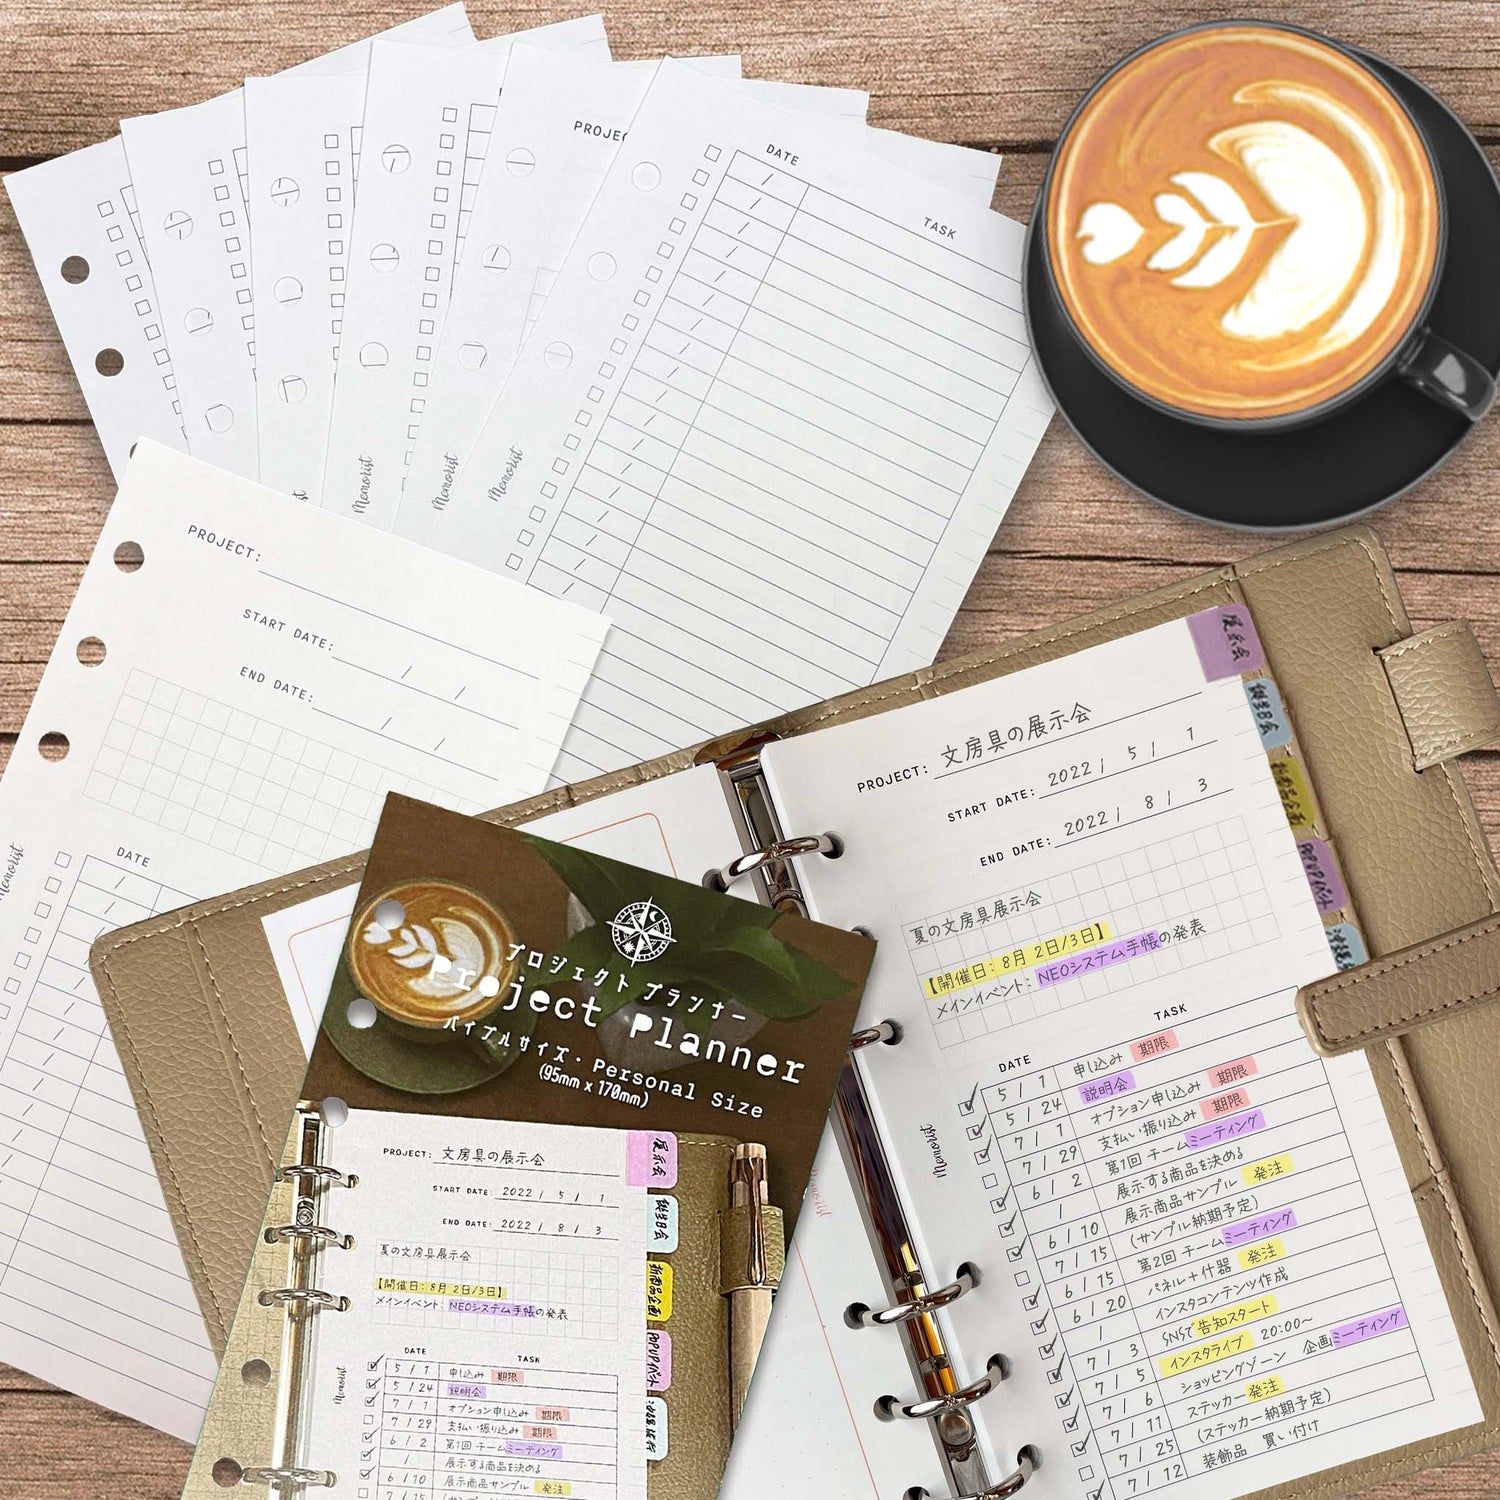 PROJEC
DATE
TASK
Memorist
Memorist
Memorist
PROJECT:
START DATE: / /
END DATE: / /
DATE
Memorist
プロジェクトプランナー
Project Planner
バイブルサイズ・Personal Size
(95mm x 170mm)
PROJECT: 文房具の展示会
START DATE: 2022 / 5 / 1
END DATE: 2022 / 8 / 3
夏の文房具展示会
【開催日: 8月 2日/3日】
メインイベント: NEOシステム手帳の発表
DATE TASK
5 / 1 申し込み 期限
5 / 24 説明会
7 / 1 オプション申し込み 期限
7 / 29 支払い振り込み 期限
6 / 2 第1回 チームミーティング
/ 展示する商品を決める
6 / 10 展示商品サンプル 発注
Memorist
展示会
誕生日会
新商品企画
POPUPイベント
PROJECT: 文房具の展示会
START DATE: 2022 / 5 / 1
END DATE: 2022 / 8 / 3
夏の文房具展示会
【開催日: 8月 2日/3日】
メインイベント: NEOシステム手帳の発表
DATE TASK
5 / 1 申し込み 期限
5 / 24 説明会
7 / 1 オプション申し込み 期限
7 / 29 支払い振り込み 期限
6 / 2 第1回 チームミーティング
/ 展示する商品を決める
6 / 10 展示商品サンプル 発注
7 / 15 (サンプル納期予定)
6 / 15 第2回 チームミーティング
6 / 20 パネル+什器 発注
/ インスタコンテンツ作成
7 / 3 SNSで告知スタート
7 / 5 インスタライブ 20:00~
7 / 6 ショッピングゾーン 企画ミーティング
7 / 11 ステッカー発注
7 / 25 (ステッカー納期予定)
7 / 12 装飾品 買い付け
Memorist
展示会
誕生日会
新商品企画
POPUPイベント